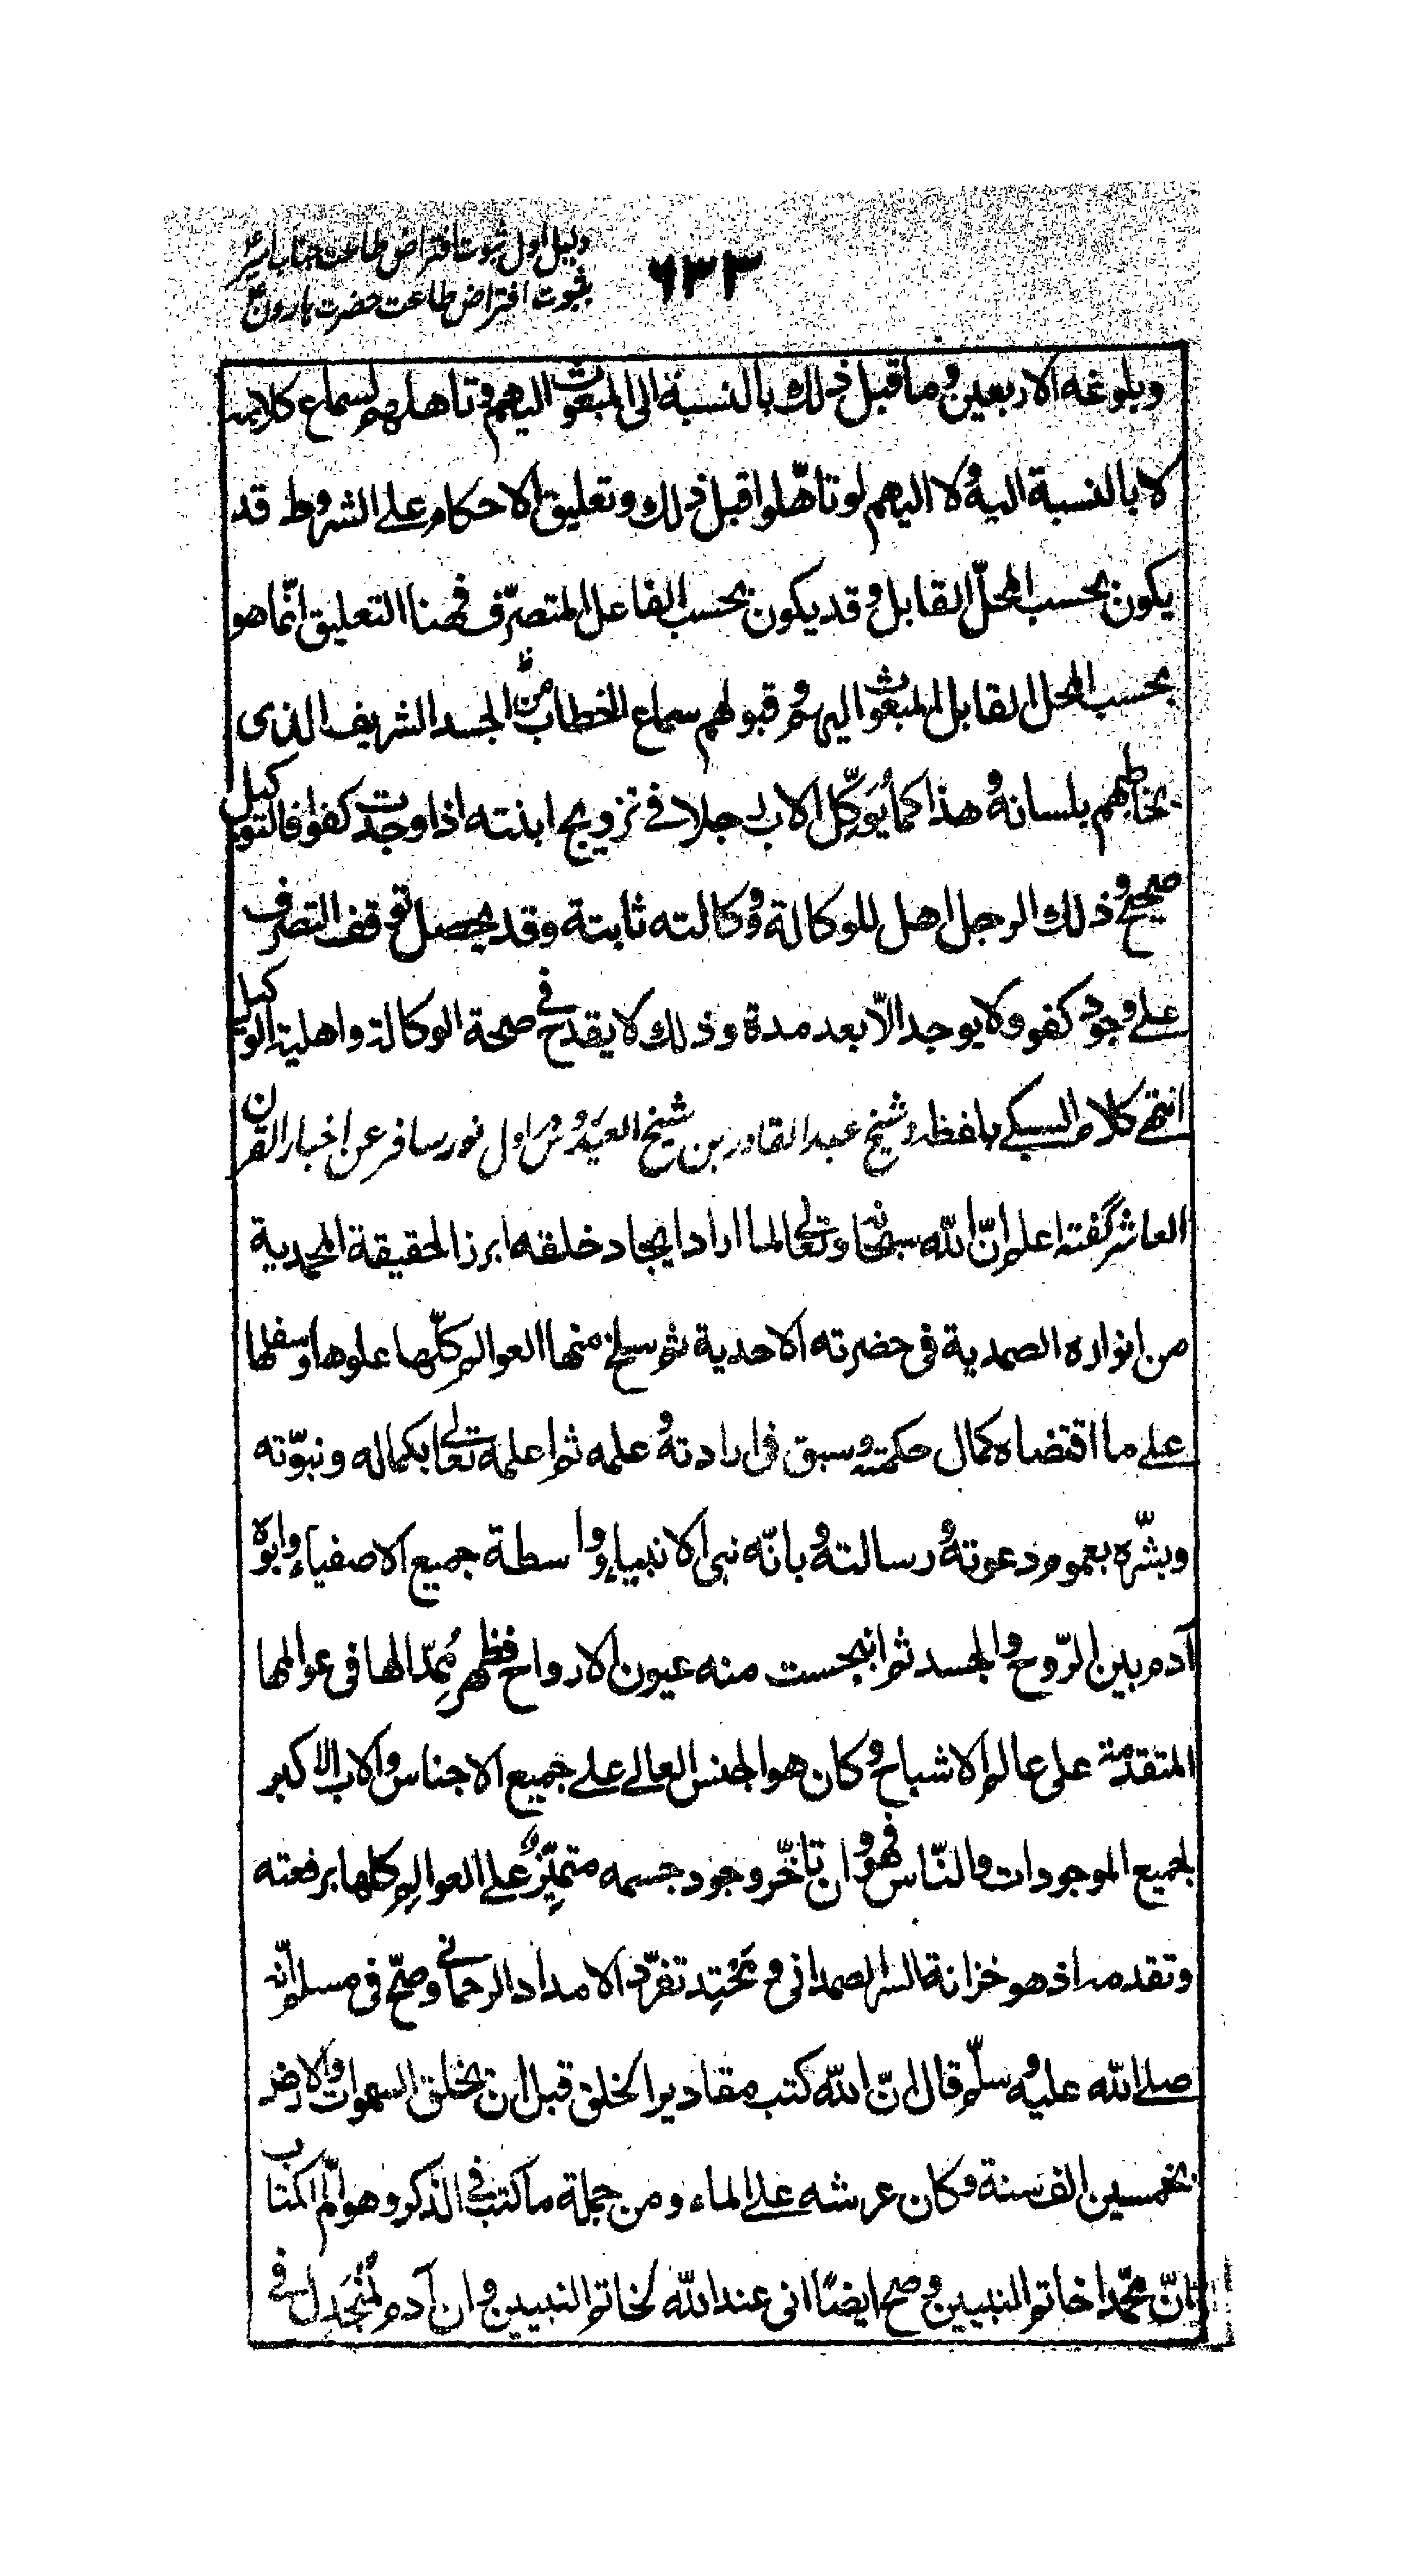 ۶۳۳
دلیل اول ثبوت افتراض طاعت جناب امیر
بثبوت افتراض طاعت حضرت هارون
وبلوغه الاربعین وما قبل ذلك بالنسبة الى المبعوث الیهم وتاهلهم لسماع كلامه
لا بالنسبة الیه ولا الیهم لو تاهّلوا قبل ذلك وتعلیق الاحكام علے الشروط قد
یكون بحسب المحلّ القابل وقد یكون بحسب الفاعل المتصرّف فههنا التعلیق انّما هو
بحسب المحل القابل المبعوث الیهم وقبولهم سماع الخطاب من الجسد الشریف الذی
یخاطبهم بلسانه وهذا كما یُوَكِّل الاب رجلا فے تزویج ابنته اذا وجدت كفوا فالتوكیل
صحیح وذلك الرجل اهل للوكالة ووكالته ثابتة وقد یحصل توقف التصرف
علے وجود كفو ولا یوجد الّا بعد مدة وذلك لا یقدح فے صحة الوكالة واهلیة الوكیل
انتهے كلام السبكے بلفظه و شیخ عبد القادر بن شیخ العَیْدَرُوس در اول نور سافر عن اخبار القرن
العاشر گفته اعلم انّ الله سبحانه وتعالى لما اراد ایجاد خلقه ابرز الحقیقة المحمدیة
من انواره الصمدیة فی حضرته الاحدیة ثم سلخ منها العوالم كلّها علوها وسفلها
علے ما اقتضاه كمال حكمته وسبق فی ارادته وعلمه ثم اعلمه تعالى بكماله ونبوّته
وبشّره بعموم دعوته ورسالته وبانّه نبی الانبیاء وواسطة جمیع الاصفیاء وابوه
آدم بین الرّوح والجسد ثم انبجست منه عیون الارواح فظهر مُمِدّا لها فی عوالمها
المتقدّمة علی عالم الاشباح وكان هو الجنس العالے علے جمیع الاجناس والاب الاكبر
لجمیع الموجودات والنّاس فهو وان تاخّر وجود جسمه متمیّزٌ علے العوالم كلها برفعته
وتقدمه اذ هو خزانة السر الصمدانی ومَحْتِد تفرّد الامداد الرحمانے وصحّ فی مسلم انّه
صلے الله علیه وسلّم قال انّ الله كتب مقادیر الخلق قبل ان یخلق السموات والارض
بخمسین الف سنة وكان عرشه علے الماء ومن جملة ما كتب فے الذكر وهو امّ الكتاب
انّ محمّدا خاتم النبیین وصح ایضًا انی عند الله لخاتم النبیین وان آدم لمُنْجَدِل فے